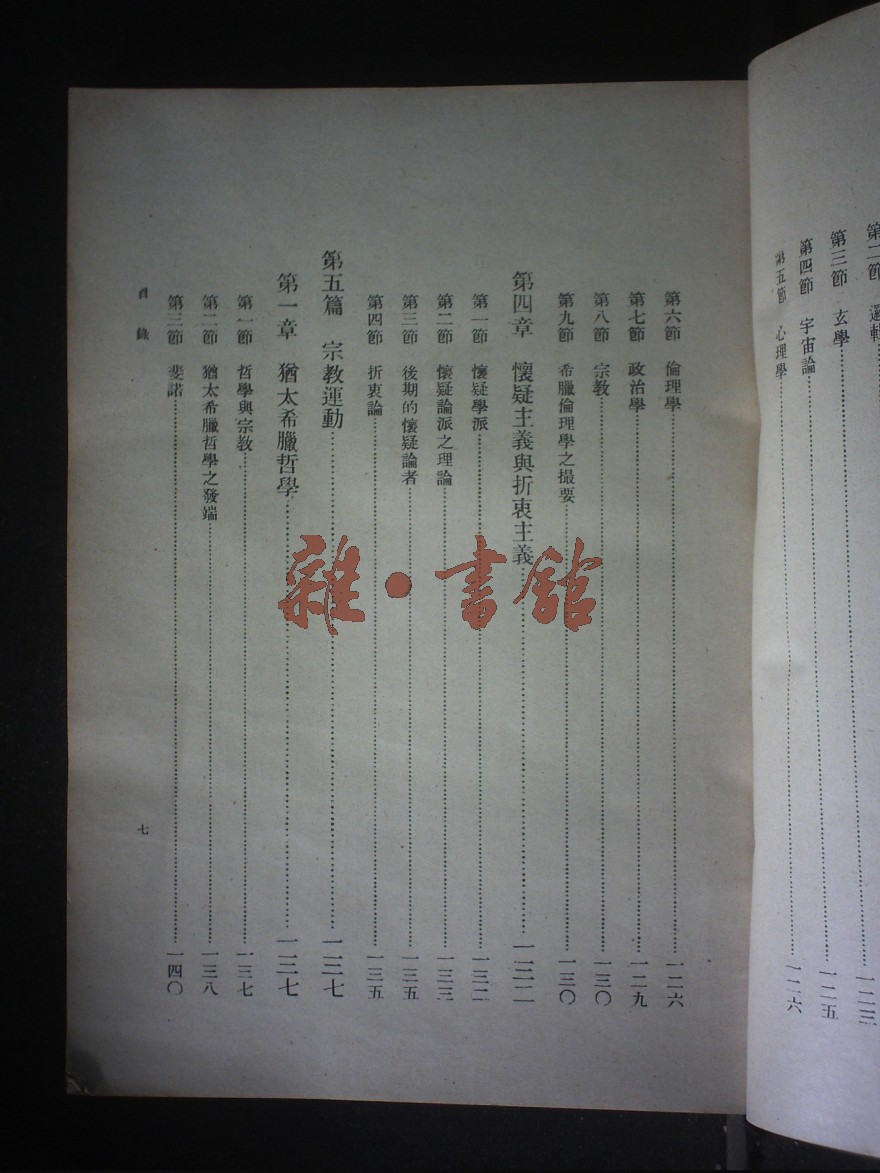 第二節 邏輯
第三節 玄學……一二三
第四節 宇宙論……一二五
第五節 心理學……一二六
第六節 倫理學……一二六
第七節 政治學……一二九
第八節 宗教……一三〇
第九節 希臘倫理學之撮要……一三〇
第四章 懷疑主義與折衷主義……一三二
第一節 懷疑學派……一三二
第二節 懷疑論派之理論……一三三
第三節 後期的懷疑論者……一三五
第四節 折衷論……一三五
第五篇 宗教運動……一三七
第一章 猶太希臘哲學……一三七
第一節 哲學與宗教……一三七
第二節 猶太希臘哲學之發端……一三八
第三節 斐諾……一四〇
目錄
七
雜·書館